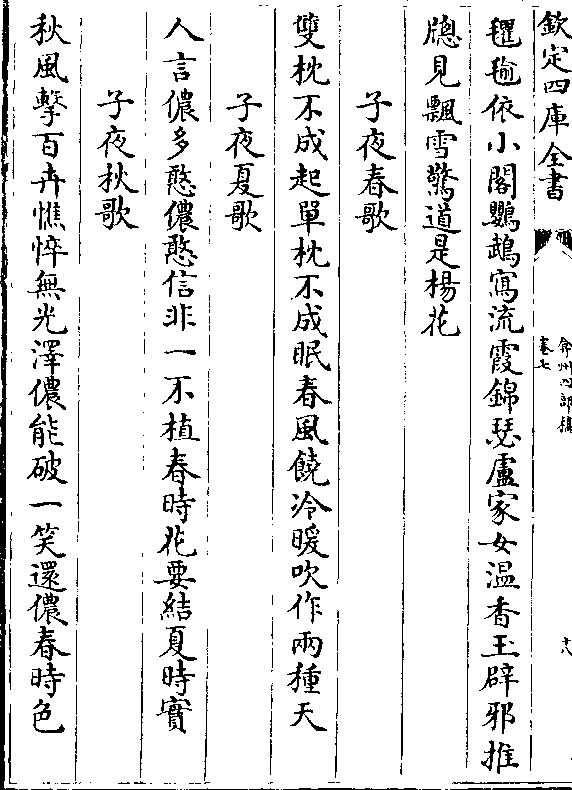 欽定四庫全書
弇州四部稿
卷七
十八
氍毹依小閣鸚鵡寫流霞錦瑟盧家女温香玉辟邪推
牕見飄雪驚道是楊花
子夜春歌
雙枕不成起單枕不成眠春風饒冷暖吹作兩種天
子夜夏歌
人言儂多憨儂憨信非一不植春時花要結夏時實
子夜秋歌
秋風擊百卉憔悴無光澤儂能破一笑還儂春時色